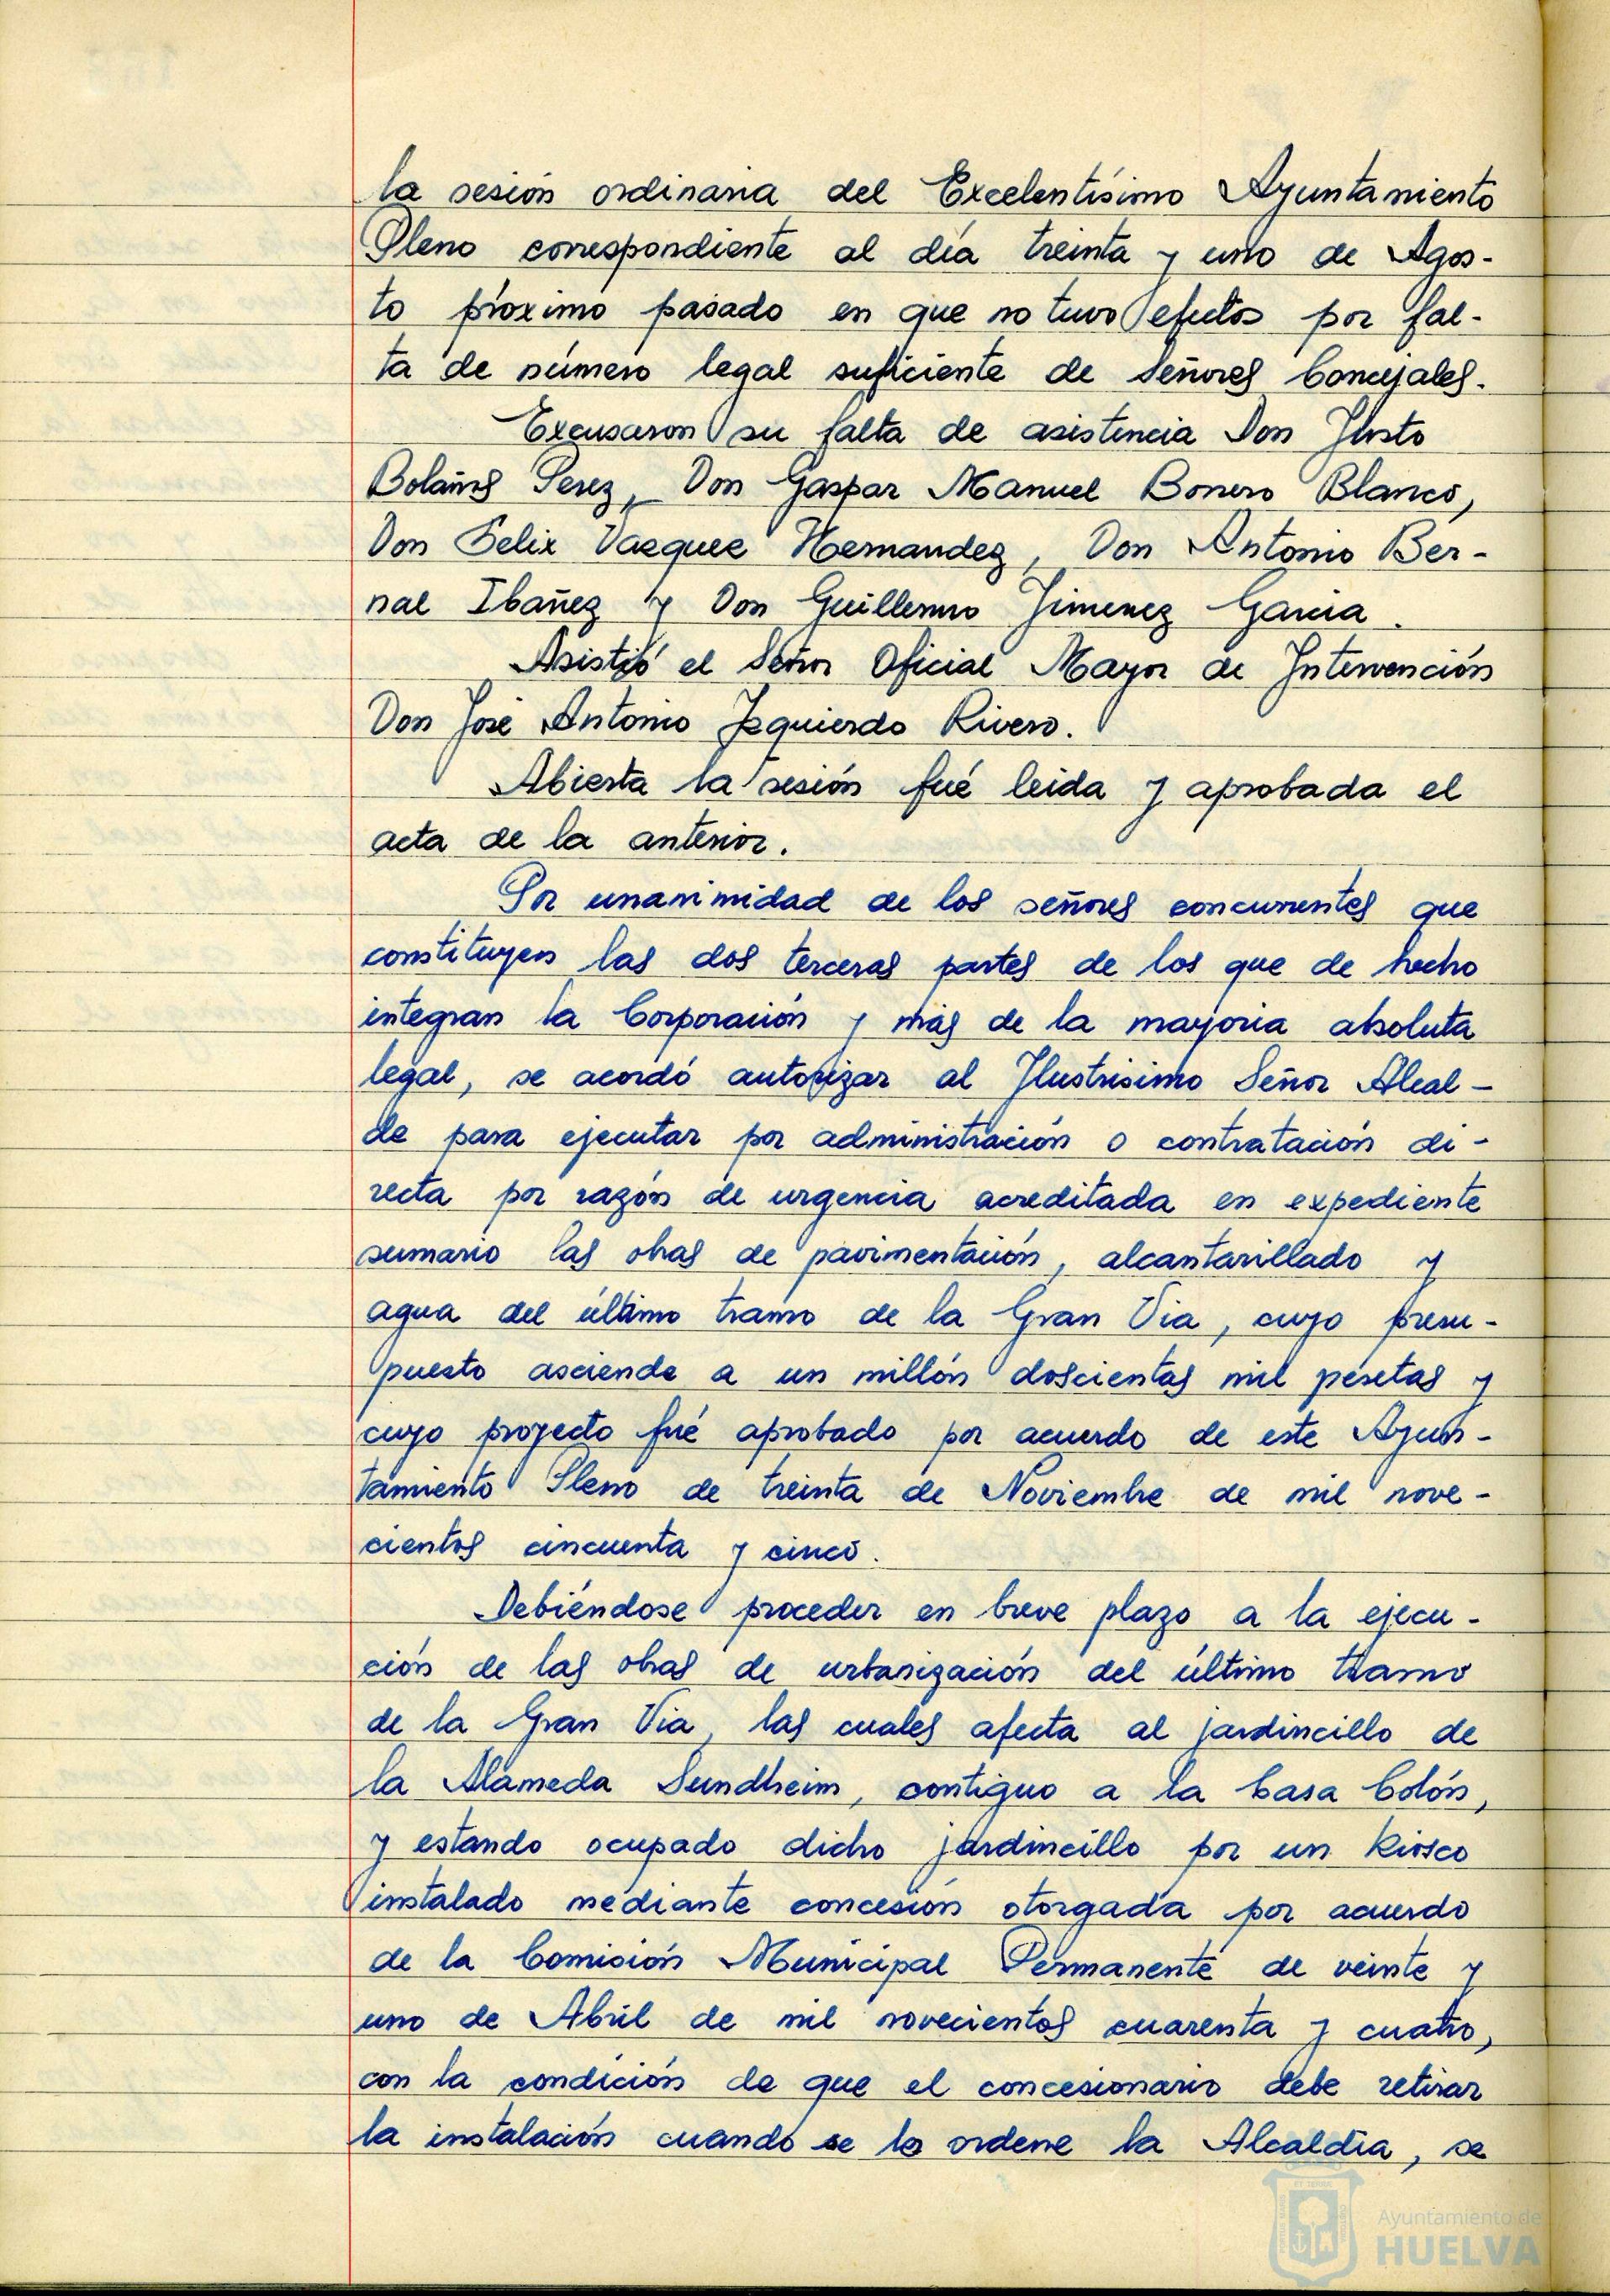 la sesión ordinaria del Excelentísimo Ayuntamiento
Pleno correspondiente al día treinta y uno de Agos-
to próximo pasado en que no tuvo efectos por fal-
ta de número legal suficiente de Señores Concejales.
Excusaron su falta de asistencia Don Justo
Bolaños Perez, Don Gaspar Manuel Bonero Blanco,
Don Felix Vazquez Hernandez, Don Antonio Ber-
nal Ibañez y Don Guillermo Jimenez Garcia.
Asistió el Señor Oficial Mayor de Intervención
Don José Antonio Izquierdo Rivero.
Abierta la sesión fué leida y aprobada el
acta de la anterior.
Por unanimidad de los señores concurrentes que
constituyen las dos terceras partes de los que de hecho
integran la Corporación y más de la mayoria absoluta
legal, se acordó autorizar al Ilustrisimo Señor Alcal-
de para ejecutar por administración o contratación di-
recta por razón de urgencia acreditada en expediente
sumario las obras de pavimentación, alcantarillado y
agua del último tramo de la Gran Via, cuyo presu-
puesto asciende a un millón doscientas mil pesetas y
cuyo proyecto fué aprobado por acuerdo de este Ayun-
tamiento Pleno de treinta de Noviembre de mil nove-
cientos cincuenta y cinco.
Debiéndose proceder en breve plazo a la ejecu-
ción de las obras de urbanización del último tramo
de la Gran Via, las cuales afecta al jardincillo de
la Alameda Sundheim, contiguo a la Casa Colón,
y estando ocupado dicho jardincillo por un Kiosco
instalado mediante concesión otorgada por acuerdo
de la Comisión Municipal Permanente de veinte y
uno de Abril de mil novecientos cuarenta y cuatro,
con la condición de que el concesionario debe retirar
la instalación cuando se lo ordene la Alcaldía, se
Ayuntamiento de
HUELVA